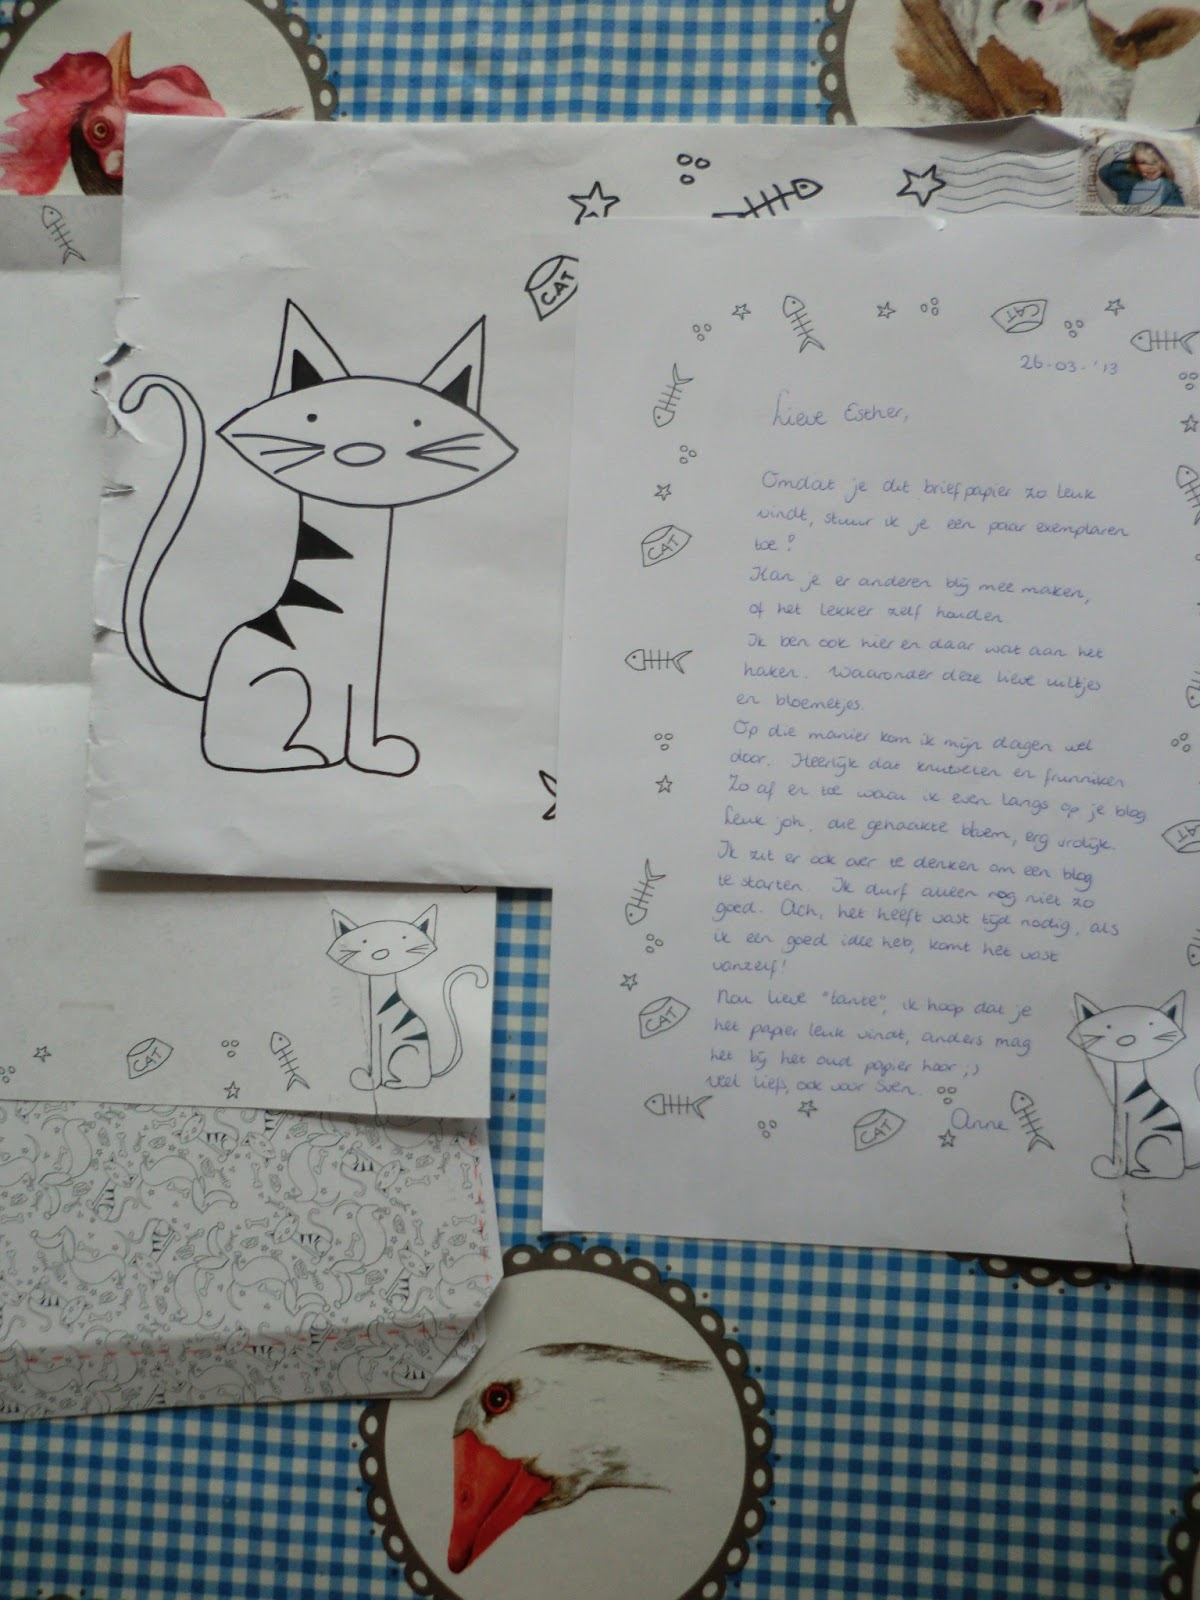 CAT
CAT
26-03-'13
Lieve Esther,
Omdat je dit briefpapier zo leuk
vindt, stuur ik je een paar exemplaren
toe!
Kan je er anderen blij mee maken,
of het lekker zelf houden.
Ik ben ook hier en daar wat aan het
haken. Waaronder deze lieve uiltjes
en bloemetjes.
Op die manier kom ik mijn dagen wel
door. Heerlijk dat knutselen en frunniken
Zo af en toe waai ik even langs op je blog
Leuk joh, die gehaakte bloem, erg vrolijk.
Ik zit er ook over te denken om een blog
te starten. Ik durf alleen nog niet zo
goed. Ach, het heeft vast tijd nodig, als
ik een goed idee heb, komt het vast
vanzelf!
Nou lieve "tante", ik hoop dat je
het papier leuk vindt, anders mag
het bij het oud papier hoor ;)
Veel liefs, ook voor Sven.
Anne
CAT
CAT
CAT
CAT
CAT